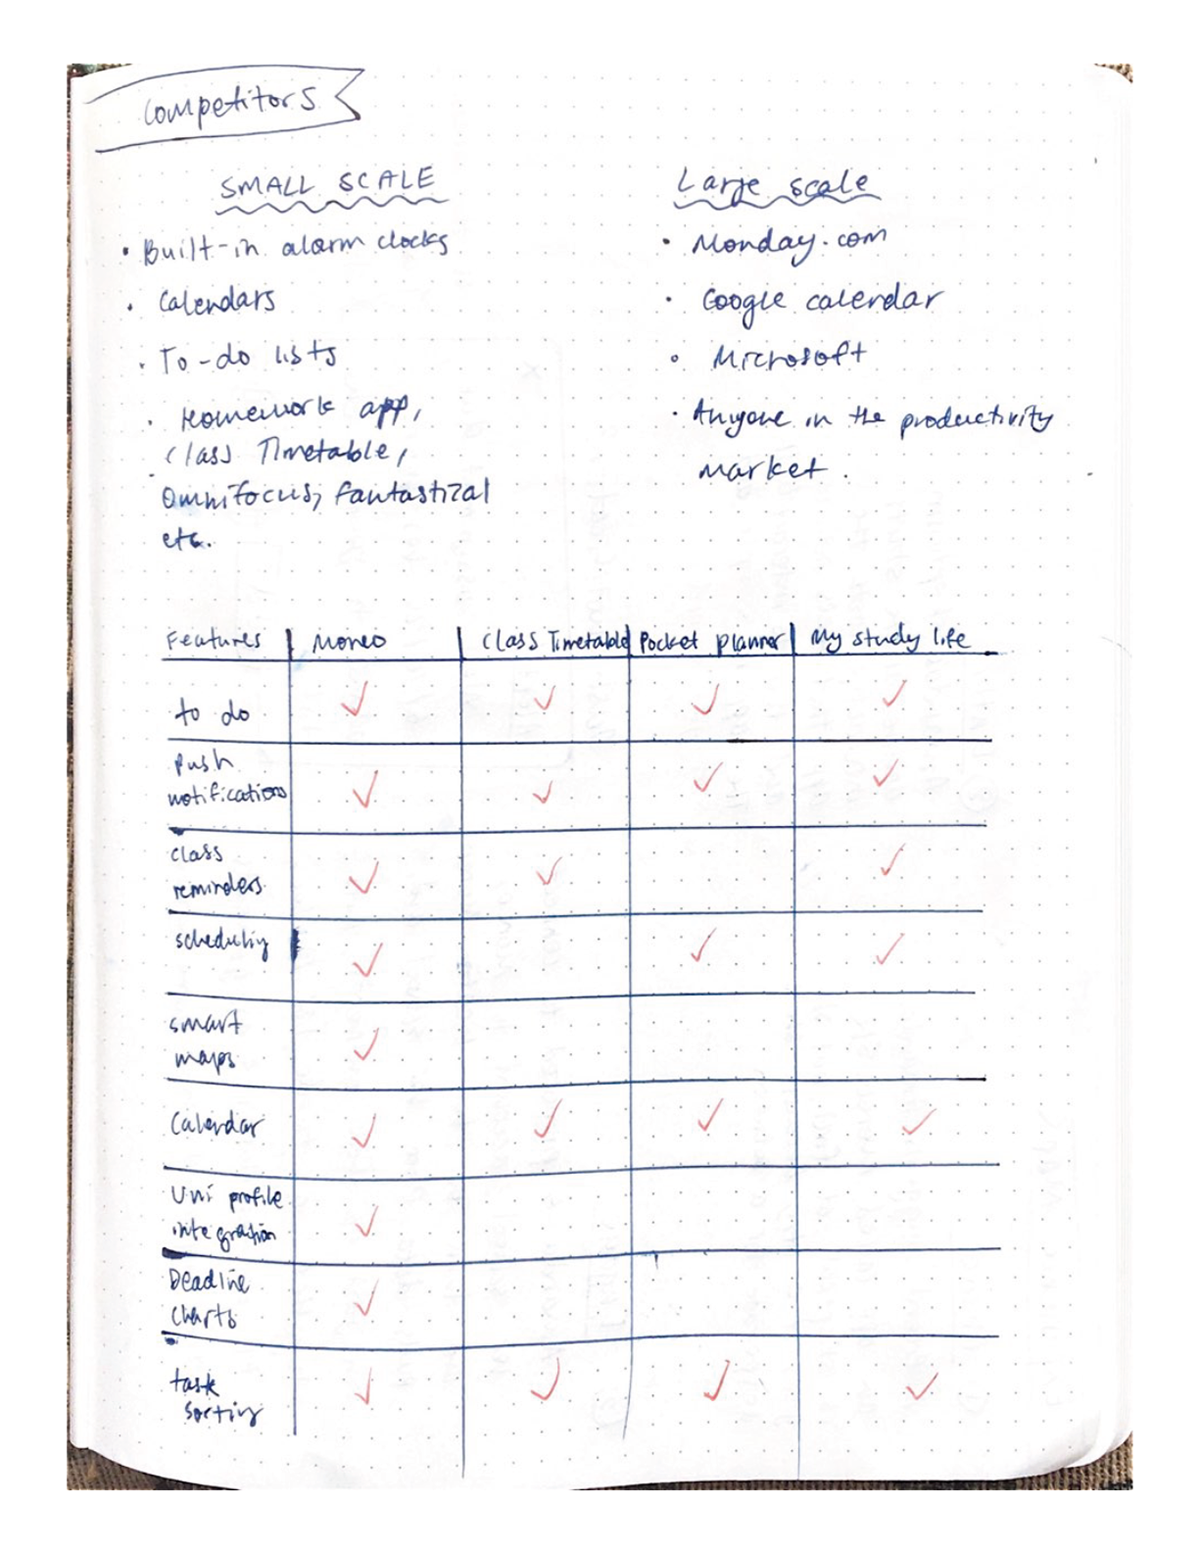 Competitors
SMALL SCALE
• Built-in alarm clocks
• Calendars
• To-do lists
• Homework app,
Class Timetable,
Omnifocus, fantastical
etc.
Large scale
• Monday.com
• Google calendar
• Microsoft
• Anyone in the productivity
market.
Features | Moneo | Class Timetable | Pocket planner | My study life
to do ✓ ✓ ✓ ✓
push
notifications ✓ ✓ ✓ ✓
class
reminders ✓ ✓ ✓
scheduling ✓ ✓ ✓
smart
maps ✓
Calendar ✓ ✓ ✓ ✓
Uni profile
integration ✓
Deadline
charts ✓
task
sorting ✓ ✓ ✓ ✓